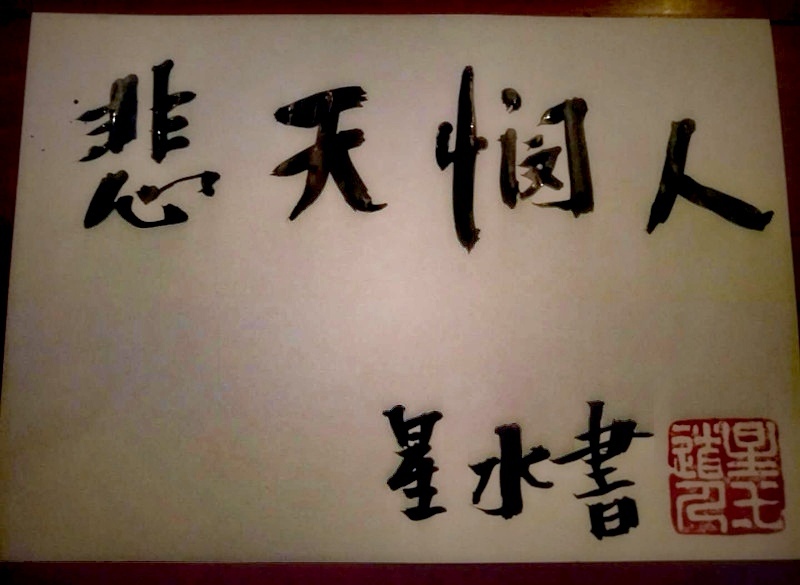 悲天悯人
星水書